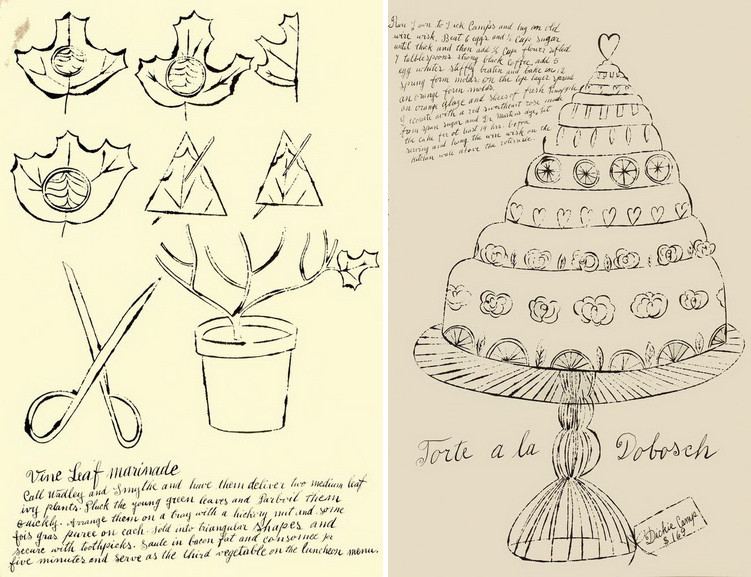 Vine Leaf marinade
Call Wadley and Smythe and have them deliver two medium leaf
ivy plants. Pluck the young green leaves and Parboil them
quickly. Arrange them on a tray with a hickory nut and some
fois gras puree on each. fold into triangular shapes and
secure with toothpicks. Saute in bacon fat and consomee for
five minutes and serve as the third vegetable on the luncheon menu.
Run down to Dick Camps and buy an old
wire wisk. Beat 6 eggs and ½ Cup sugar
until thick and then add ¾ Cup flower sifted
7 tablespoons strong black Coffee, add 6
egg whites stiffly beaten and bake in 12
spring form molds. on the top layer spread
an orange form molds.
an orange glaze and slices of fresh Pineapple
Decorate with a red sweetheart rose made
from spun sugar and
the cake for at least 19 hrs. before
serving and hang the wire wisk on the
Kitchen wall above the rotisserie.
Torte a la Dobosch
Dickie Camp
$1.69